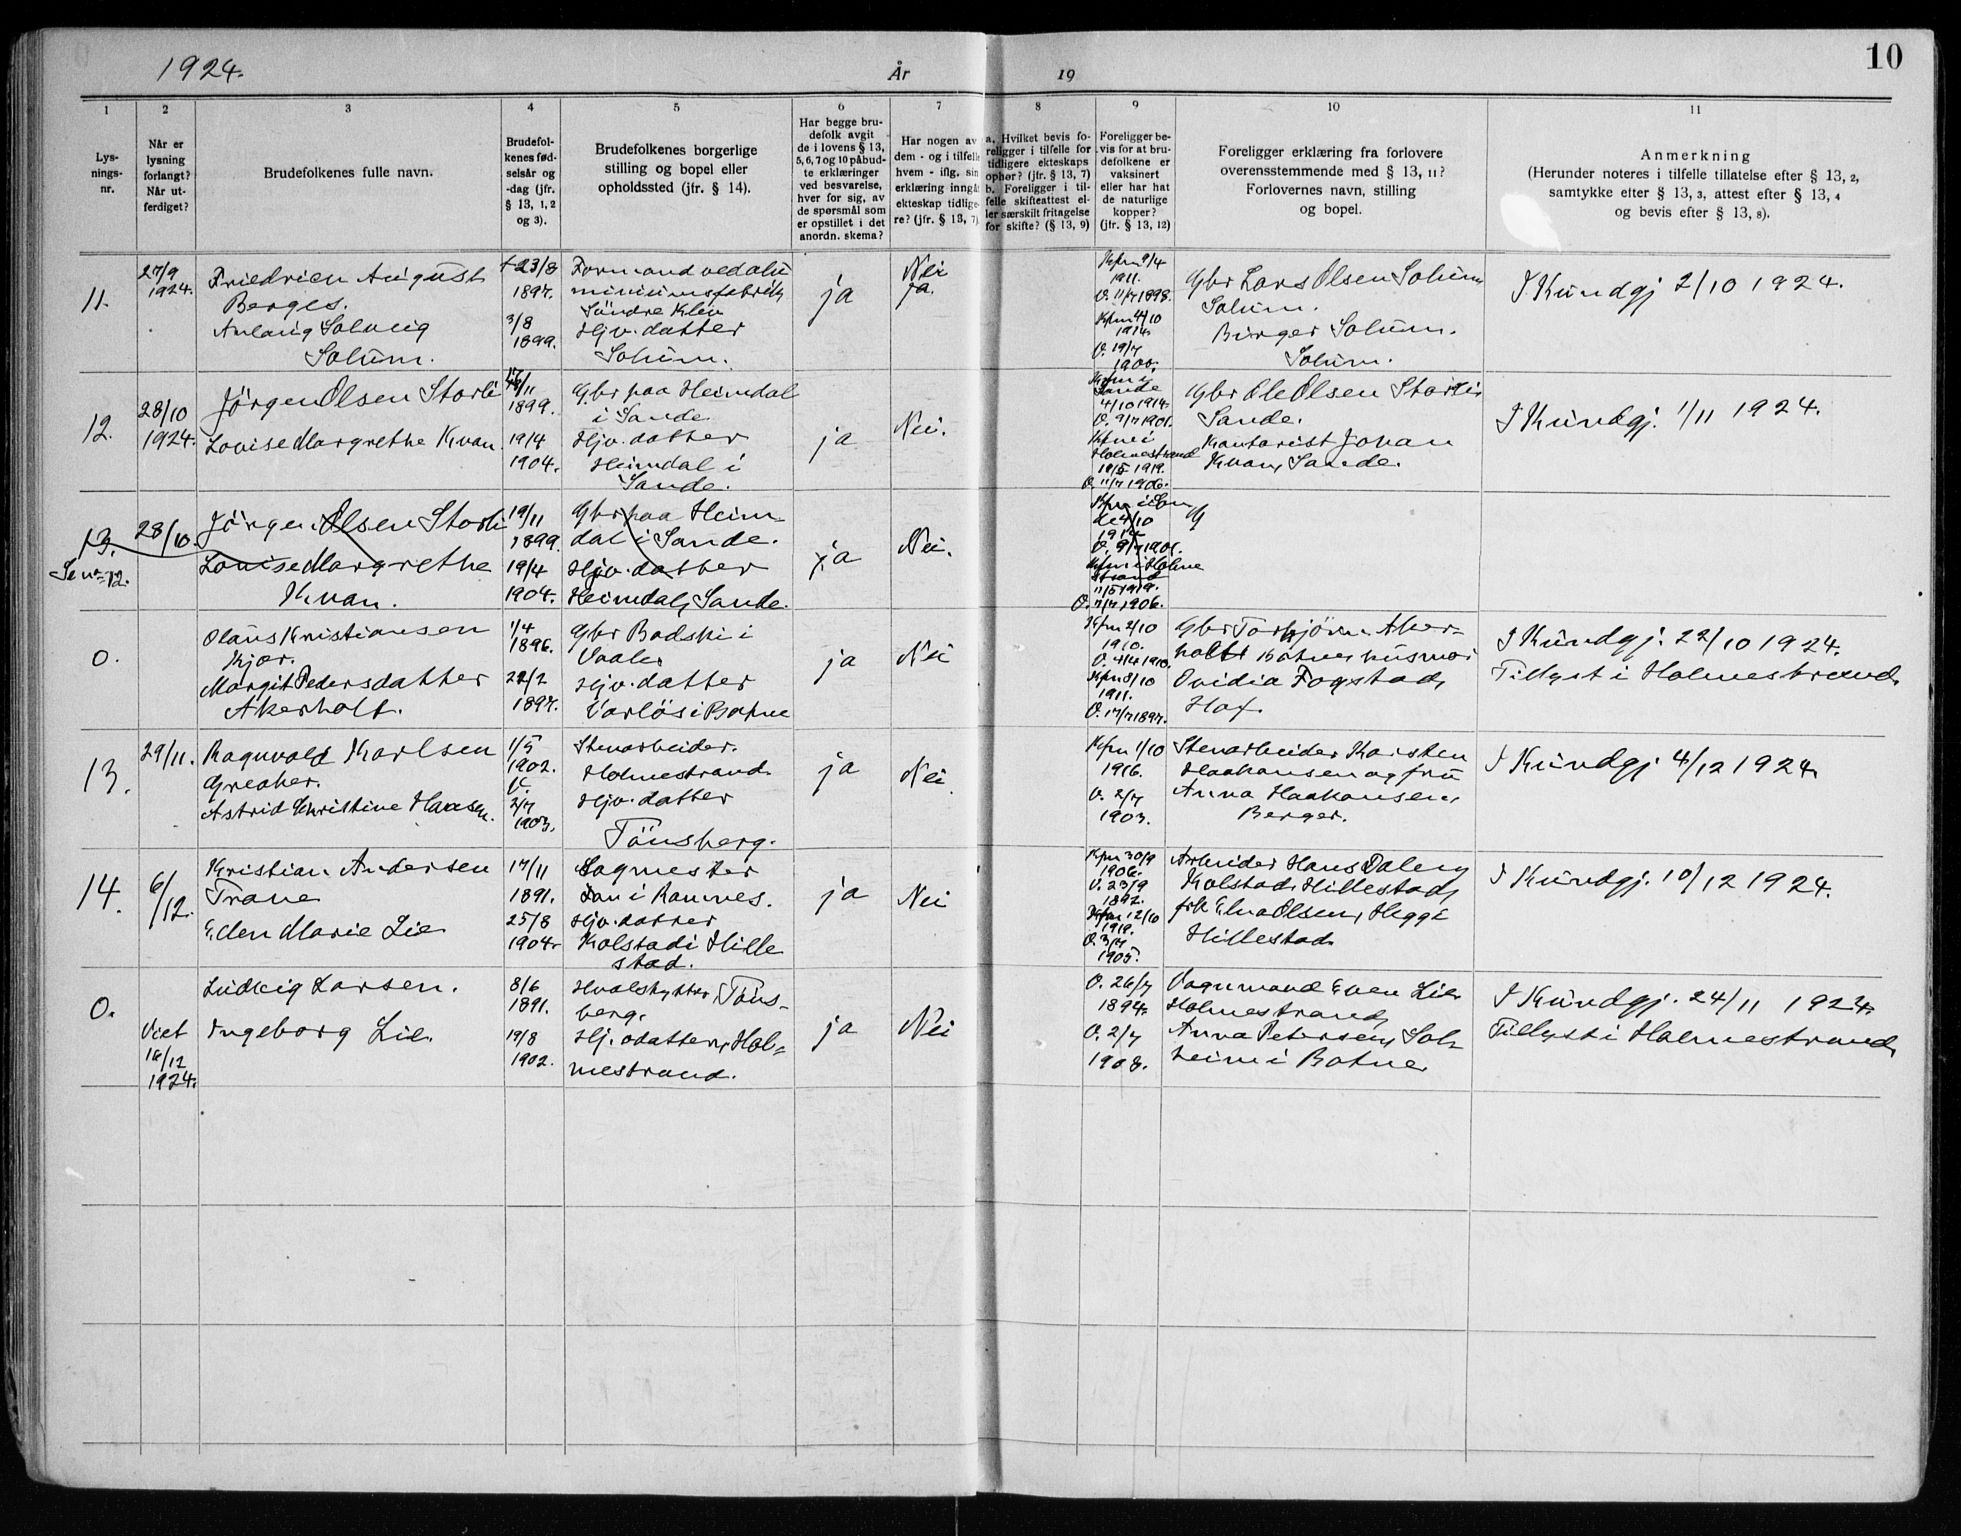 1924.
År
19
10
1
2
3
4
5
6
7
8
9
10
11
Lys-
nings-
nr.
Når er
lysning
forlangt?
Når ut-
ferdiget?
Brudefolkenes fulle navn.
Brudefol-
kenes fød-
selsår og
-dag (jfr.
§ 13, 1, 2
og 3).
Brudefolkenes borgerlige
stilling og bopel eller
opholdssted (jfr. § 14).
Har begge bru-
defolk avgit
de i lovens § 13,
5, 6, 7 og 10 påbud-
te erklæringer
ved besvarelse,
hver for sig, av
de spørsmål som
er opstillet i det
anordn. skema?
Har nogen av
dem - og i tilfelle
hvem - iflg. sin
erklæring inngåt
ekteskap tidlige-
re? (jfr. § 13, 7)
a. Hvilket bevis fo-
religger i tilfelle for
tidligere ekteskaps
ophør? (jfr. § 13, 7)
b. Foreligger i til-
felle skifteattest el-
ler særskilt fritagelse
for skifte? (§ 13, 9)
Foreligger be-
vis for at bru-
defolkene er
vaksinert
eller har hat
de naturlige
kopper?
(jfr. § 13, 12)
Foreligger erklæring fra forlovere
overensstemmende med § 13, 11?
Forlovernes navn, stilling
og bopel.
Anmerkning
(Herunder noteres i tilfelle tillatelse efter § 13, 2,
samtykke efter § 13, 3, attest efter § 13, 4
og bevis efter § 13, 8).
11.
27/9
1924.
Friedrich August
Berges.
Anlaug Solveig
Solum.
23/8
1897.
3/8
1899.
Formand ved alu
miniumsfabrik
Søndre Klev
Hjv. datter
Solum.
ja
Nei
ja.
Kfm 9/4
1911.
V. 11/7 1898.
Kfm 4/10
1914.
V. 19/7
1900.
Gbr Lars Olsen Solum,
Solum.
Birger Solum.
Solum.
I Kundgj 2/10 1924.
12.
28/10
1924.
Jörgen Olsen Storli
Lovise Margrethe Kvan.
/11
1899.
19/4
1904.
Gbr paa Heimdal
i Sande.
Hjv. datter
Heimdal i
Sande.
ja
Nei.
Kfm i
Sande
4/10 1914.
V. 9/7 1901.
Kfm i
Holmestrand
11/5 1919.
V. 11/7 1906.
Gbr Ole Olsen Storli
Sande.
Kontorist Johan
Kvan, Sande.
I Kundgj. 1/11 1924.
13.
Se nr 12.
28/10.
Jörgen Olsen Storli
Lovise Margrethe
Kvan.
19/11
1899.
19/4
1904.
Gbr paa Heim-
dal i Sande.
Hjv. datter
Heimdal, Sande.
ja
Nei.
Kfm i San
de 4/10
1914
V. 9/7 1901.
Kfm i Holme
strand
11/5 1919.
V. 11/7 1906.
G
0.
Olaus Kristiansen
Kjær.
Margit Pedersdatter
Akerholt.
1/4
1896.
22/2
1897.
Gbr Badski i
Vaale
Hjv. datter
Varlös i Botne
ja
Nei
Kfm 2/10
1910.
V. 4/4 1910.
Kfm 8/10
1911.
V. 17/7 1897.
Gbr Torbjörn Aker-
holt Botne, husmor
Ovidia Fogstad,
Hof.
I Kundgj. 22/10 1924.
Tillyst i Holmestrand
13.
29/11.
Ragnvald Karlsen
Greaker.
Astrid Christine Hansen.
1/5
1902.
2/7
1903.
Stenarbeider.
Holmestrand.
Hjv. datter
Tönsberg.
ja
Nei
Kfm 1/10
1916.
V. 2/7
1903.
Stenarbeider Karsten
Haakonsen og fru
Anna Haakonsen,
Berger.
I Kundgj 4/12 1924.
14.
6/12.
Kristian Andersen
Trane
Ellen Marie Lie
17/11
1891.
25/8
1904.
Sagmester
i Ramnes.
Hjv. datter
Kolstad i Hille
stad.
ja
Nei
Kfm 30/9
1906.
V. 23/9
1892.
Kfm 12/10
1919.
V. 3/7
1905.
Arbeider Hans Dalen,
Kolstad, Hillestad,
frk Elna Olsen, Hegg i
Hillestad
I Kundgj. 10/12 1924.
0.
Viet
18/12
1924.
Ludvig Larsen.
Ingeborg Lie.
8/6
1891.
19/8
1902.
Hvalskytter, Töns-
berg.
Hj. datter, Hol-
mestrand.
ja
Nei
V. 26/7
1894.
V. 2/7
1908.
Vognmand Even Lie
Holmestrand,
Anna Petersen, Sol-
heim i Botne
I Kundgj. 24/11 1924.
Tillyst i Holmestrand